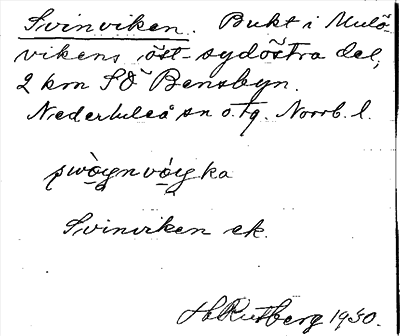 Svinviken. Bukt i Mulö-
vikens öst-sydöstra del,
2 km SÖ Bensbyn.
Nederluleå sn o. tg. Norrb. l.
swòynvóyka
Svinviken ek.
H. Rutberg 1930.